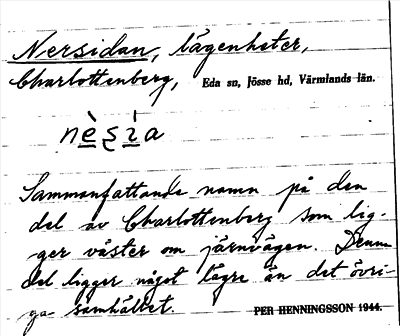 Nersidan, lägenheter,
Charlottenberg, Eda sn, Jösse hd, Värmlands län.
nè̱ʂi̱̇a
Sammanfattande namn på den
del av Charlottenberg som lig-
ger väster om järnvägen. Denna
del ligger något lägre än det övri-
ga samhället. PER HENNINGSSON 1944.